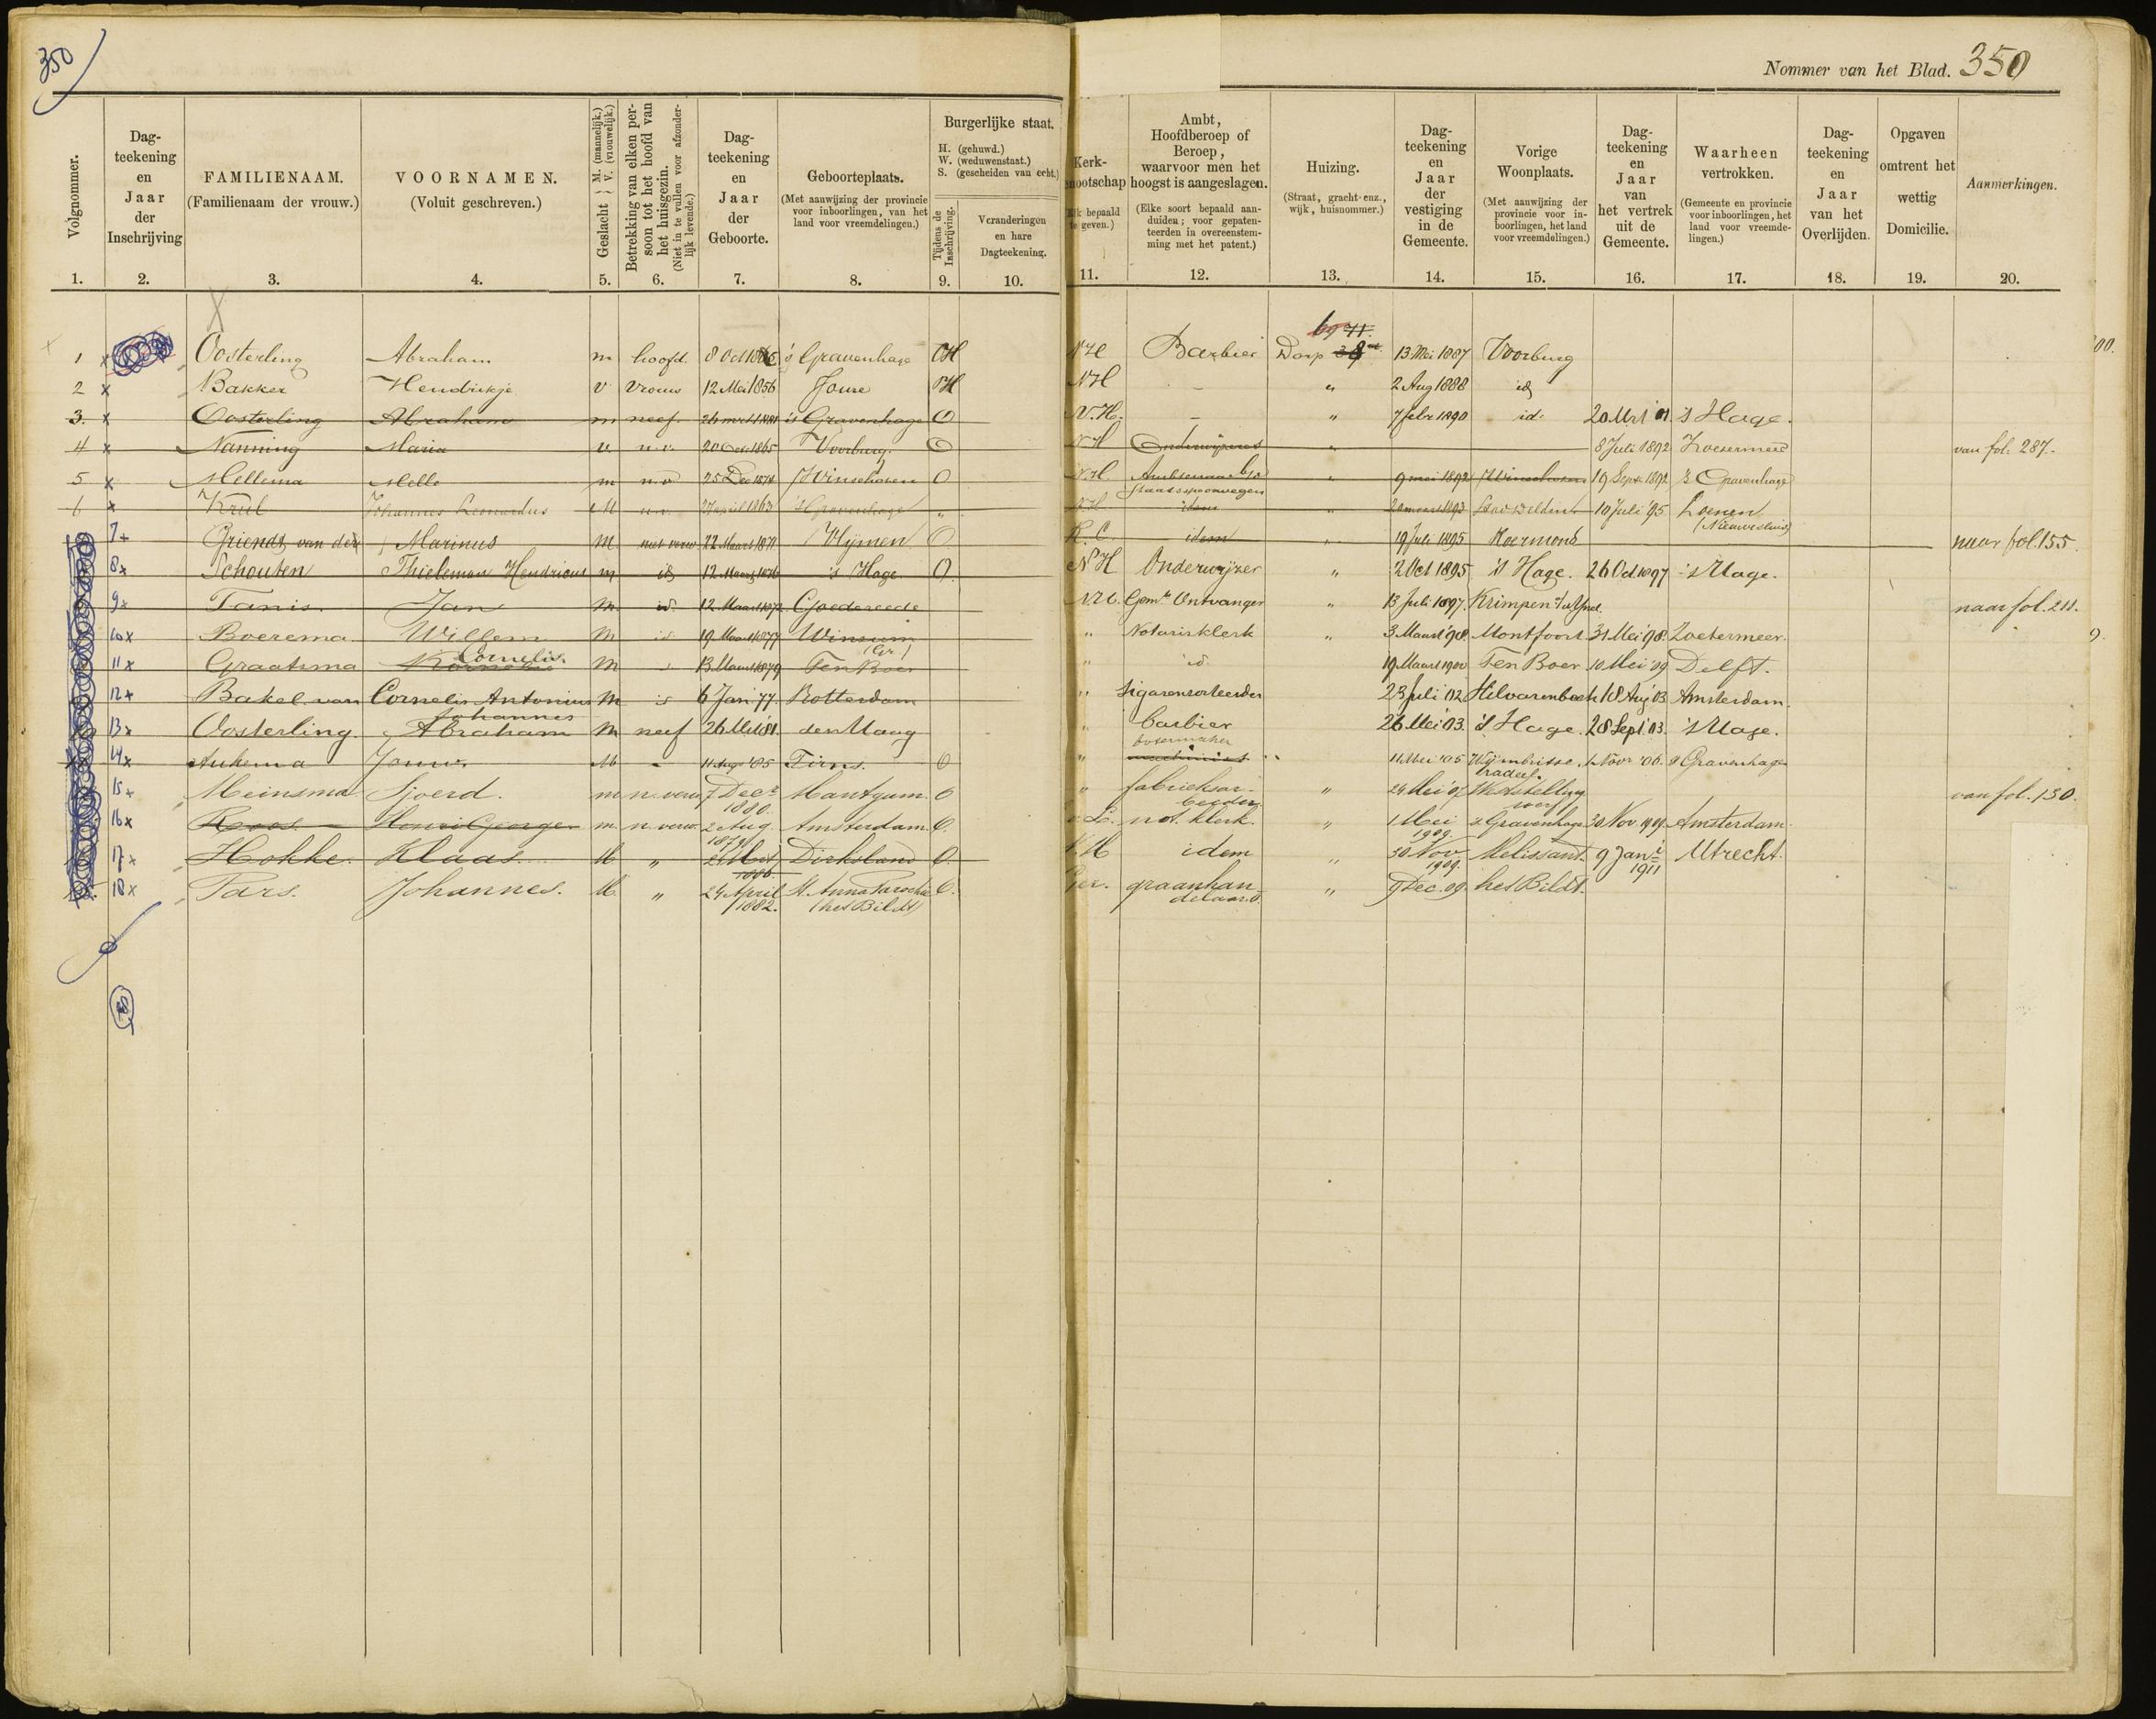 350
Nommer van het Blad. 350
Volgnommer.
Dag-
teekening
en
Jaar
der
Inschrijving
FAMILIENAAM.
(Familienaam der vrouw.)
VOORNAMEN.
(Voluit geschreven.)
Geslacht } M. (mannelijk.) V. (vrouwelijk.)
Betrekking van elken per-
soon tot het hoofd van
het huisgezin.
(Niet in te vullen voor afzonder-
lijk levende.)
Dag-
teekening
en
Jaar
der
Geboorte.
Geboorteplaats.
(Met aanwijzing der provincie
voor inboorlingen, van het
land voor vreemdelingen.)
Burgerlijke staat.
H. (gehuwd.)
W. (weduwenstaat.)
S. (gescheiden van echt.)
Tijdens de
Inschrijving.
Veranderingen
en hare
Dagteekening.
Kerk-
nootschap
bepaald
te geven.)
Ambt,
Hoofdberoep of
Beroep,
waarvoor men het
hoogst is aangeslagen.
(Elke soort bepaald aan-
duiden; voor gepaten-
teerden in overeenstem-
ming met het patent.)
Huizing.
(Straat, gracht enz.,
wijk, huisnommer.)
Dag-
teekening
en
Jaar
der
vestiging
in de
Gemeente.
Vorige
Woonplaats.
(Met aanwijzing der
provincie voor in-
boorlingen, het land
voor vreemdelingen.)
Dag-
teekening
en
Jaar
van
het vertrek
uit de
Gemeente.
Waarheen
vertrokken.
(Gemeente en provincie
voor inboorlingen, het
land voor vreemde-
lingen.)
Dag-
teekening
en
Jaar
van het
Overlijden.
Opgaven
omtrent het
wettig
Domicilie.
Aanmerkingen.
1. 2. 3. 4. 5. 6. 7. 8. 9. 10. 11. 12. 13. 14. 15. 16. 17. 18. 19. 20.
1 x Oosterling Abraham m hoofd 8 Oct 's Gravenhage H NH Barbier Dorp 13 Mei 1887 Voorburg
2 x Bakker Hendrikje v vrouw 12 Mei 1856 Joure H NH - " 2 Aug 1888 id
3. x Oosterling Abraham m neef 's Gravenhage O N.H. - " 7 febr 1890 id. 's Hage.
4 x Nanning Maria v. n.v. 20 Oct. 1865 Voorburg. O NH Onderwijzeres " 8 Juli 1892 Zoetermeer van fol. 287.
5 x Mellema Melle m n.v 25 Dec 1874 Winschoten O N.H. Ambtenaar b/d
Staatsspoorwegen " 9 mei 1892 Winschoten 19 Sept 1892 's Gravenhage
6 x Krul Johannes Leonardus M n.v. 27 april 1863 's Gravenhage " NH idem " 10 Juli '95 Loenen
(Nieuwersluis)
7 x Griendt, van der Marinus M. niet verw 22 Maart 1871 Wijmen O R.C. idem " 19 Juli 1895 Roermond naar fol. 155.
8 x Schouten Thieleman Hendricus m id 12 Maart 1876 's Hage O. NH Onderwijzer " 2 Oct 1895 's Hage. 26 Oct 1897 's Hage.
9 x Tanis. Jan M. id. 12 Maart 1872 Goedereede N.H. Gem. Ontvanger " 13 Juli 1897. Krimpen a/d IJssel. naar fol. 211.
10 x Boerema. Willem M id 19 Maart 1877 Winsum
(Gr.) " Notarisklerk " 3 Maart '98. Montfoort 31 Mei '98. Zoetermeer.
11 x Graatsma Cornelis. M 13 Maart 1879 Ten Boer " id. 19 Maart 1900 Ten Boer 10 Mei '09 Delft.
12 x Bakel van Cornelis Antonius
Johannes M is 6 Jan '77. Rotterdam " Sigarensorteerder 23 Juli '02 Hilvarenbeek 18 Aug '03 Amsterdam.
13 x Oosterling. Abraham M neef 26 Mei '81. den Haag " barbier 26 Mei '03. 's Hage. 28 Sept '03. 's Hage.
14 x Aukema Jouw. M - 11 Aug '85 Tirns. O " 11 Mei '05 Wijmbritse-
radeel. Nov '06. 's Gravenhage
15 x Meinsma Sjoerd. m n. verw 7 Dec
1880. Mantgum. O " fabrieksar-
beider " 24 Mei '07 Weststelling
werf van fol. 130.
16 x Roos. Henri George m. n. verw. 2 Aug.
Amsterdam. O. not. klerk. " 1 Mei
1909. 's Gravenhage 30 Nov. 1909. Amsterdam.
17 x Hokke. Klaas. M " Dirksland O. N.H idem " 30 Nov
1909. Melissant. 9 Jan
1911 Utrecht.
18 x Tars. Johannes. M " 24 April
1882. St. Anna Parochie
(het Bildt) O. Ger. graanhan-
delaar " 9 Dec. 09. het Bildt.